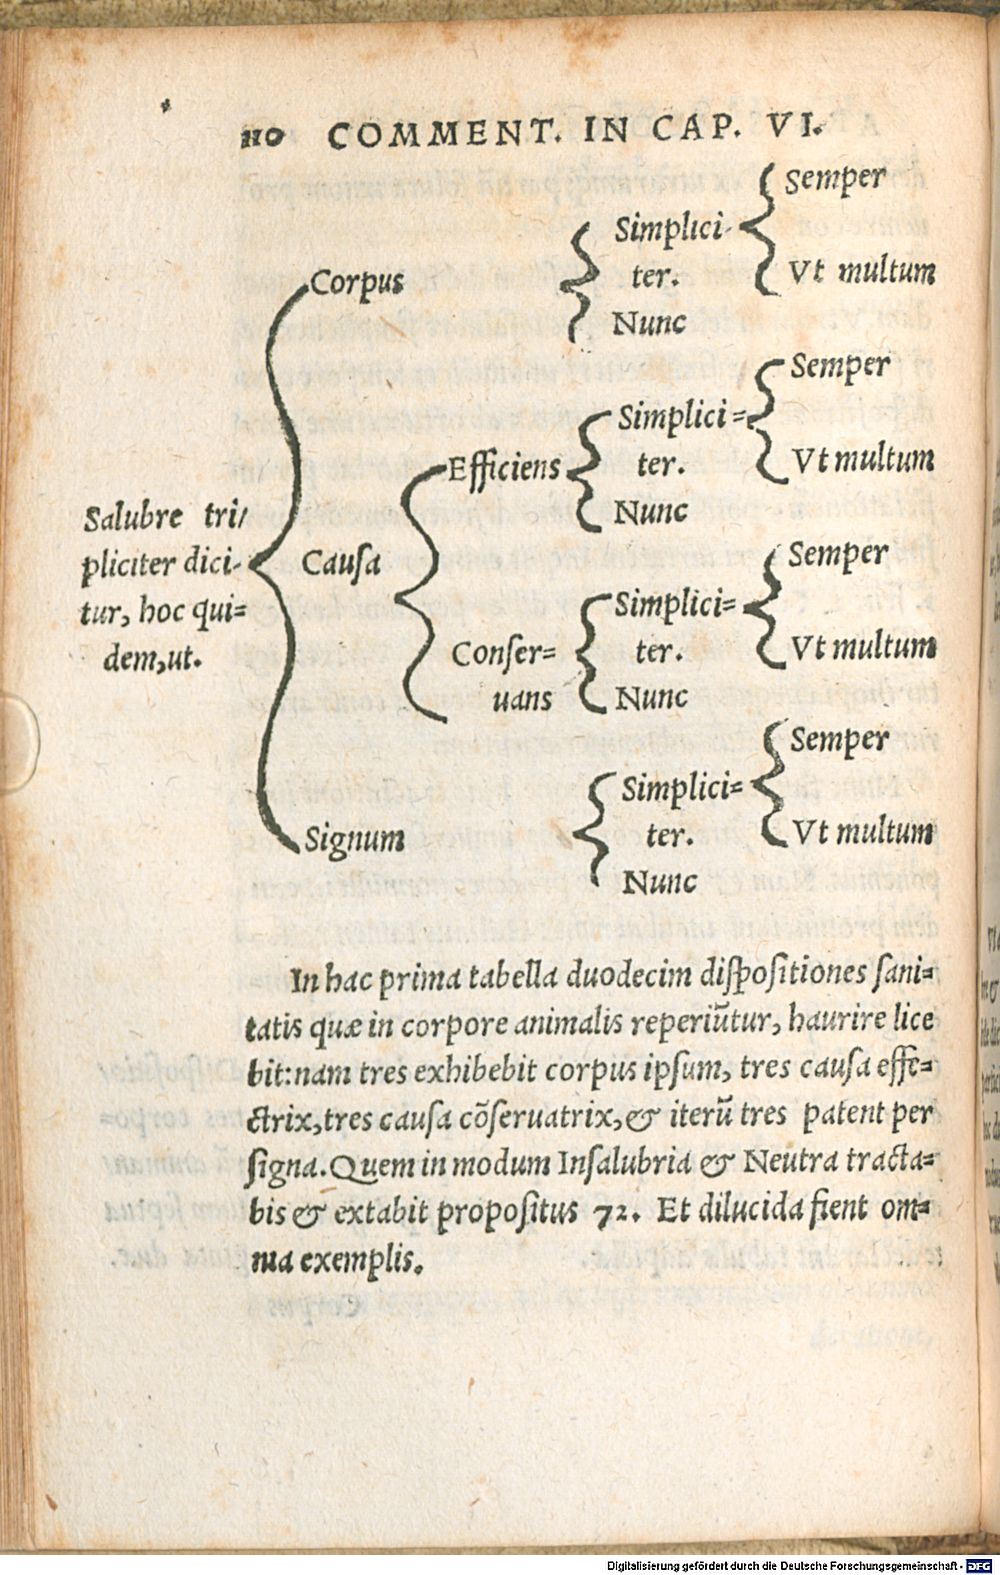 110 COMMENT. IN CAP. VI.
Salubre tri/
pliciter dici-
tur, hoc qui=
dem,ut.
Corpus
Simplici-
ter.
Semper
Vt multum
Nunc
Causa
Efficiens
Simplici=
ter.
Semper
Vt multum
Nunc
Conser=
uans
Simplici=
ter.
Semper
Vt multum
Nunc
Signum
Simplici=
ter.
Semper
Vt multum
Nunc
In hac prima tabella duodecim dispositiones sani=
tatis quæ in corpore animalis reperiũtur, haurire lice
bit:nam tres exhibebit corpus ipsum, tres causa effe=
ctrix,tres causa cõseruatrix,& iterũ tres patent per
signa.Quem in modum Insalubria & Neutra tracta=
bis & extabit propositus 72. Et dilucida fient om=
nia exemplis.
Digitalisierung gefördert durch die Deutsche Forschungsgemeinschaft - DFG